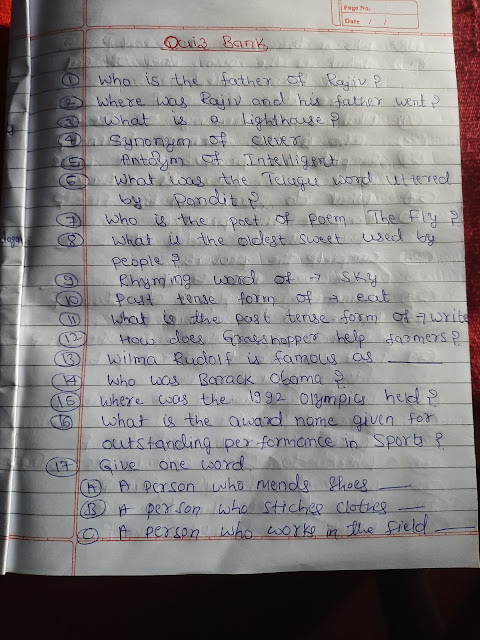 Page No.
Date / /
Quiz Bank
1 Who is the father of Rajiv?
2 Where was Rajiv and his father went?
3 What is a Lighthouse?
4 Synonym of clever
5 Antoym of Intelligent
6 What was the Telugu word uttered
by Pandit?
7 Who is the poet of Poem The Fly?
8 What is the oldest sweet used by
people?
9 Rhyming word of → Sky
10 Past tense form of → eat
11 What is the past tense form of → write
12 How does Grasshopper help farmers?
13 Wilma Rudolf is famous as ____
14 Who was Barack Obama?
15 Where was the 1992 Olympics held?
16 What is the award name given for
outstanding performance in Sports?
17 Give one word
A A person who mends shoes __
B A person who stiches clothes __
C A person who works in the field __